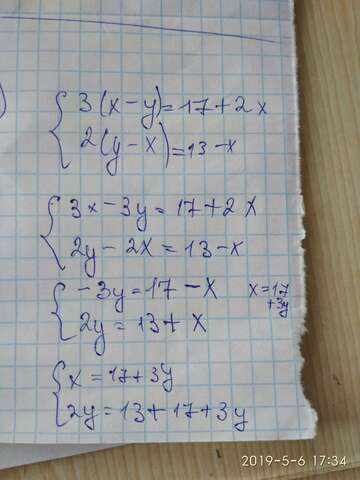 3(x-y)=17+2x
2(y-x)=13-x
3x-3y=17+2x
2y-2x=13-x
-3y=17-x x=17
2y=13+x +3y
x=17+3y
2y=13+17+3y
2019-5-6 17:34